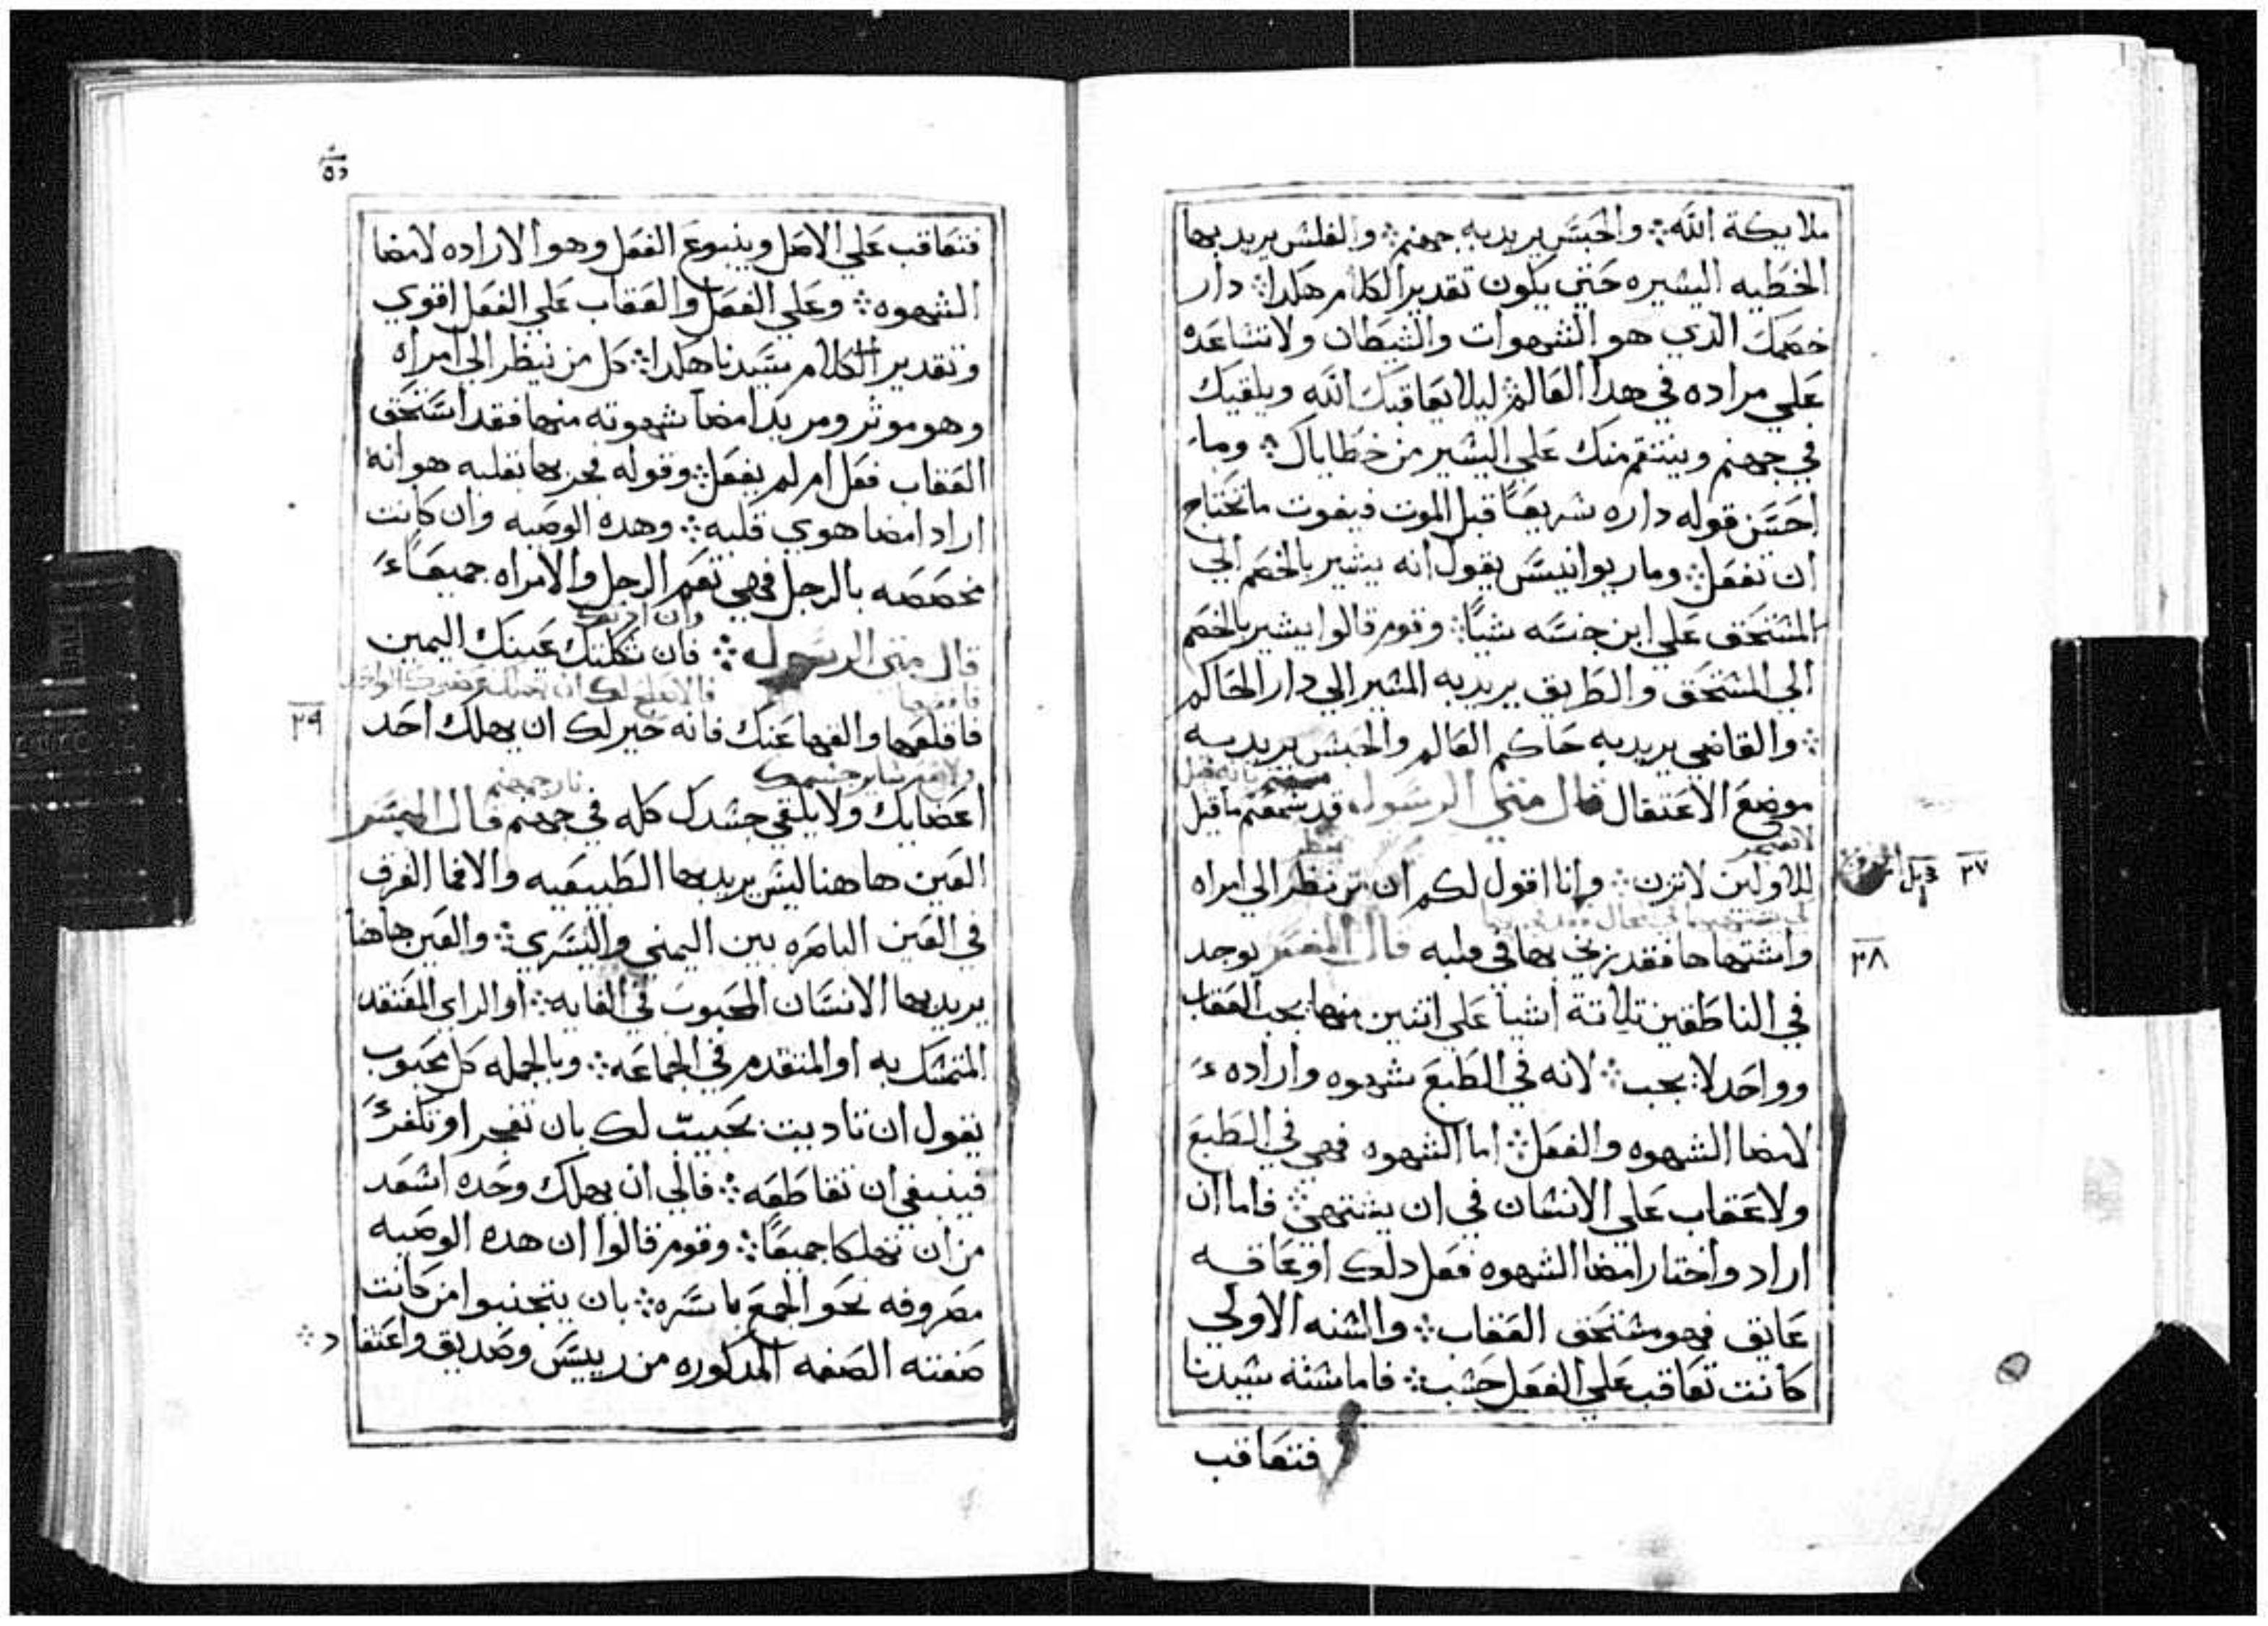 ملايكة الله ⁘ والحبس يريد به جهنم ⁘ والفلس يريد بها
الخطيه اليسيره حتي يكون تقدير الكلام هكدا ⁘ دار
خصمك الدي هو الشهوات والشيطان ولا تساعده
علي مراده في هدا العالم ليلا يعاقبك الله ويلقيك
في جهنم وينتقم منك علي اليسير من خطاياك ⁘ وما
احسن قوله داره سريعًا قبل الموت فيفوت ما تحتاج
ان تفعل ⁘ ومار يوانيس يقول انه يشير بالخصم الي
المستحق علي ابن جنسه شيًا ⁘ وقوم قالوا يشير بالخصم
الي المستحق والطريق يريد به المسير الي دار الحاكم
⁘ والقاضي يريد به حاكم العالم والحبس يريد به
موضع الاعتقال قال متي الرسول قد سمعتم ما قيل
للاولين لا تزن ⁘ وانا اقول لكم ان من نظر الي امراه
٣٧
واشتهاها فقد زني بها في قلبه قال المفسر يوجد
٣٨
في الناطقين تلاتة اشيا علي اتنين منها يجب العقاب
وواحد لا يجب ⁘ لانه في الطبع شهوه واراده
لامضا الشهوه والفعل ⁘ اما الشهوه فهي في الطبع
ولا عقاب علي الانسان في ان يشتهي ⁘ فاما ان
اراد واختار امضا الشهوه فعل دلك او عاقه
عايق فهو مستحق العقاب ⁘ والسنه الاولي
كانت تعاقب علي الفعل حسب ⁘ فاما سنه سيدنا
فتعاقب
فتعاقب علي الاصل وينبوع الفعل وهو الاراده لامضا
الشهوه ⁘ وعلي الفعل والعقاب علي الفعل اقوي
وتقدير الكلام سيدنا هكدا ⁘ كل من نيظر الي امراه
وهو موثر ومريد امضا شهوته منها فقد استحق
العقاب فعل ام لم يفعل ⁘ وقوله فجر بها بقلبه هو انه
اراد امضا هوي قلبه ⁘ وهده الوصيه وان كانت
مخصصه بالرجل فهي تعم الرجل والامراه جميعًا
قال متي الرسول ⁘ فان شككتك عينك اليمين
فاقلعها والقها عنك فانه خير لك ان يهلك احد
٣٩
نار جهنم
اعضايك ولا يلقي جسدك كله في جهنم قال المفسر
العين هاهنا ليس يريد بها الطبيعيه والا فما الفرق
في العين الباصره بين اليمني واليسري ⁘ والعين هاهنا
يريد بها الانسان المحبوب في الغايه ⁘ او الراي المعتقد
المتمسك به او المتقدم في الجماعه ⁘ وبالجمله كل محبوب
يقول ان تاديت بحبيب لك بان تفجر او تكفر
فينبغي ان تقاطعه ⁘ فالي ان يهلك وحده اسعد
من ان تهلكا جميعًا ⁘ وقوم قالوا ان هده الوصيه
مصروفه نحو الجمع باسره ⁘ بان يتجنبوا من كانت
صفته الصفه المدكوره من رييس وصديق واعتقاد ⁘